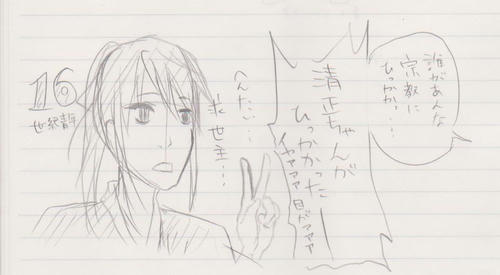 誰があんな
宗教に
ひっかか,・・・
清正ちゃんが
ひっかかった
イヤァァァ 目がァァァ
へんたい・・・
求世主・・・
16
世紀青年